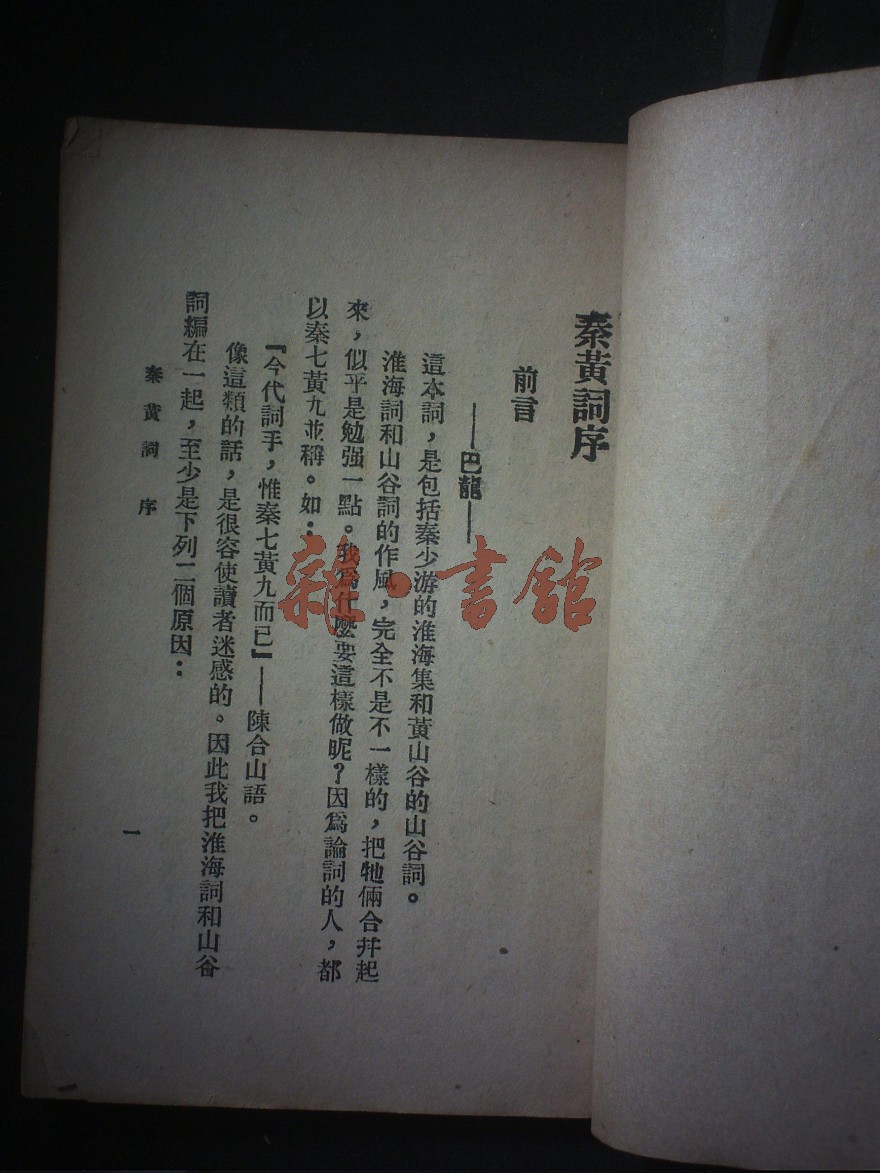 秦黃詞序
前言
——巴龍——
這本詞，是包括秦少游的淮海集和黃山谷的山谷詞。
淮海詞和山谷詞的作風，完全不是不一樣的，把牠倆合并起
來，似乎是勉强一點。我爲什麼要這樣做呢？因爲論詞的人，都
以秦七黃九並稱。如：
『今代詞手，惟秦七黃九而已』——陳合山語。
像這類的話，是很容使讀者迷感的。因此我把淮海詞和山谷
詞編在一起，至少是下列二個原因：
秦黃詞 序
一
雜·書館